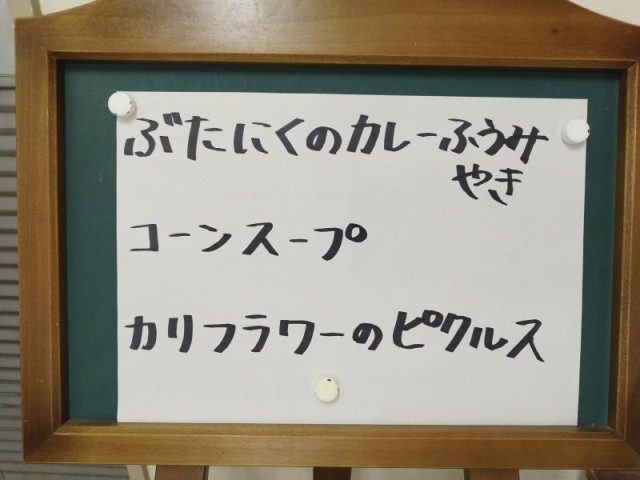 ぶたにくのカレーふうみ
やき
コーンスープ
カリフラワーのピクルス